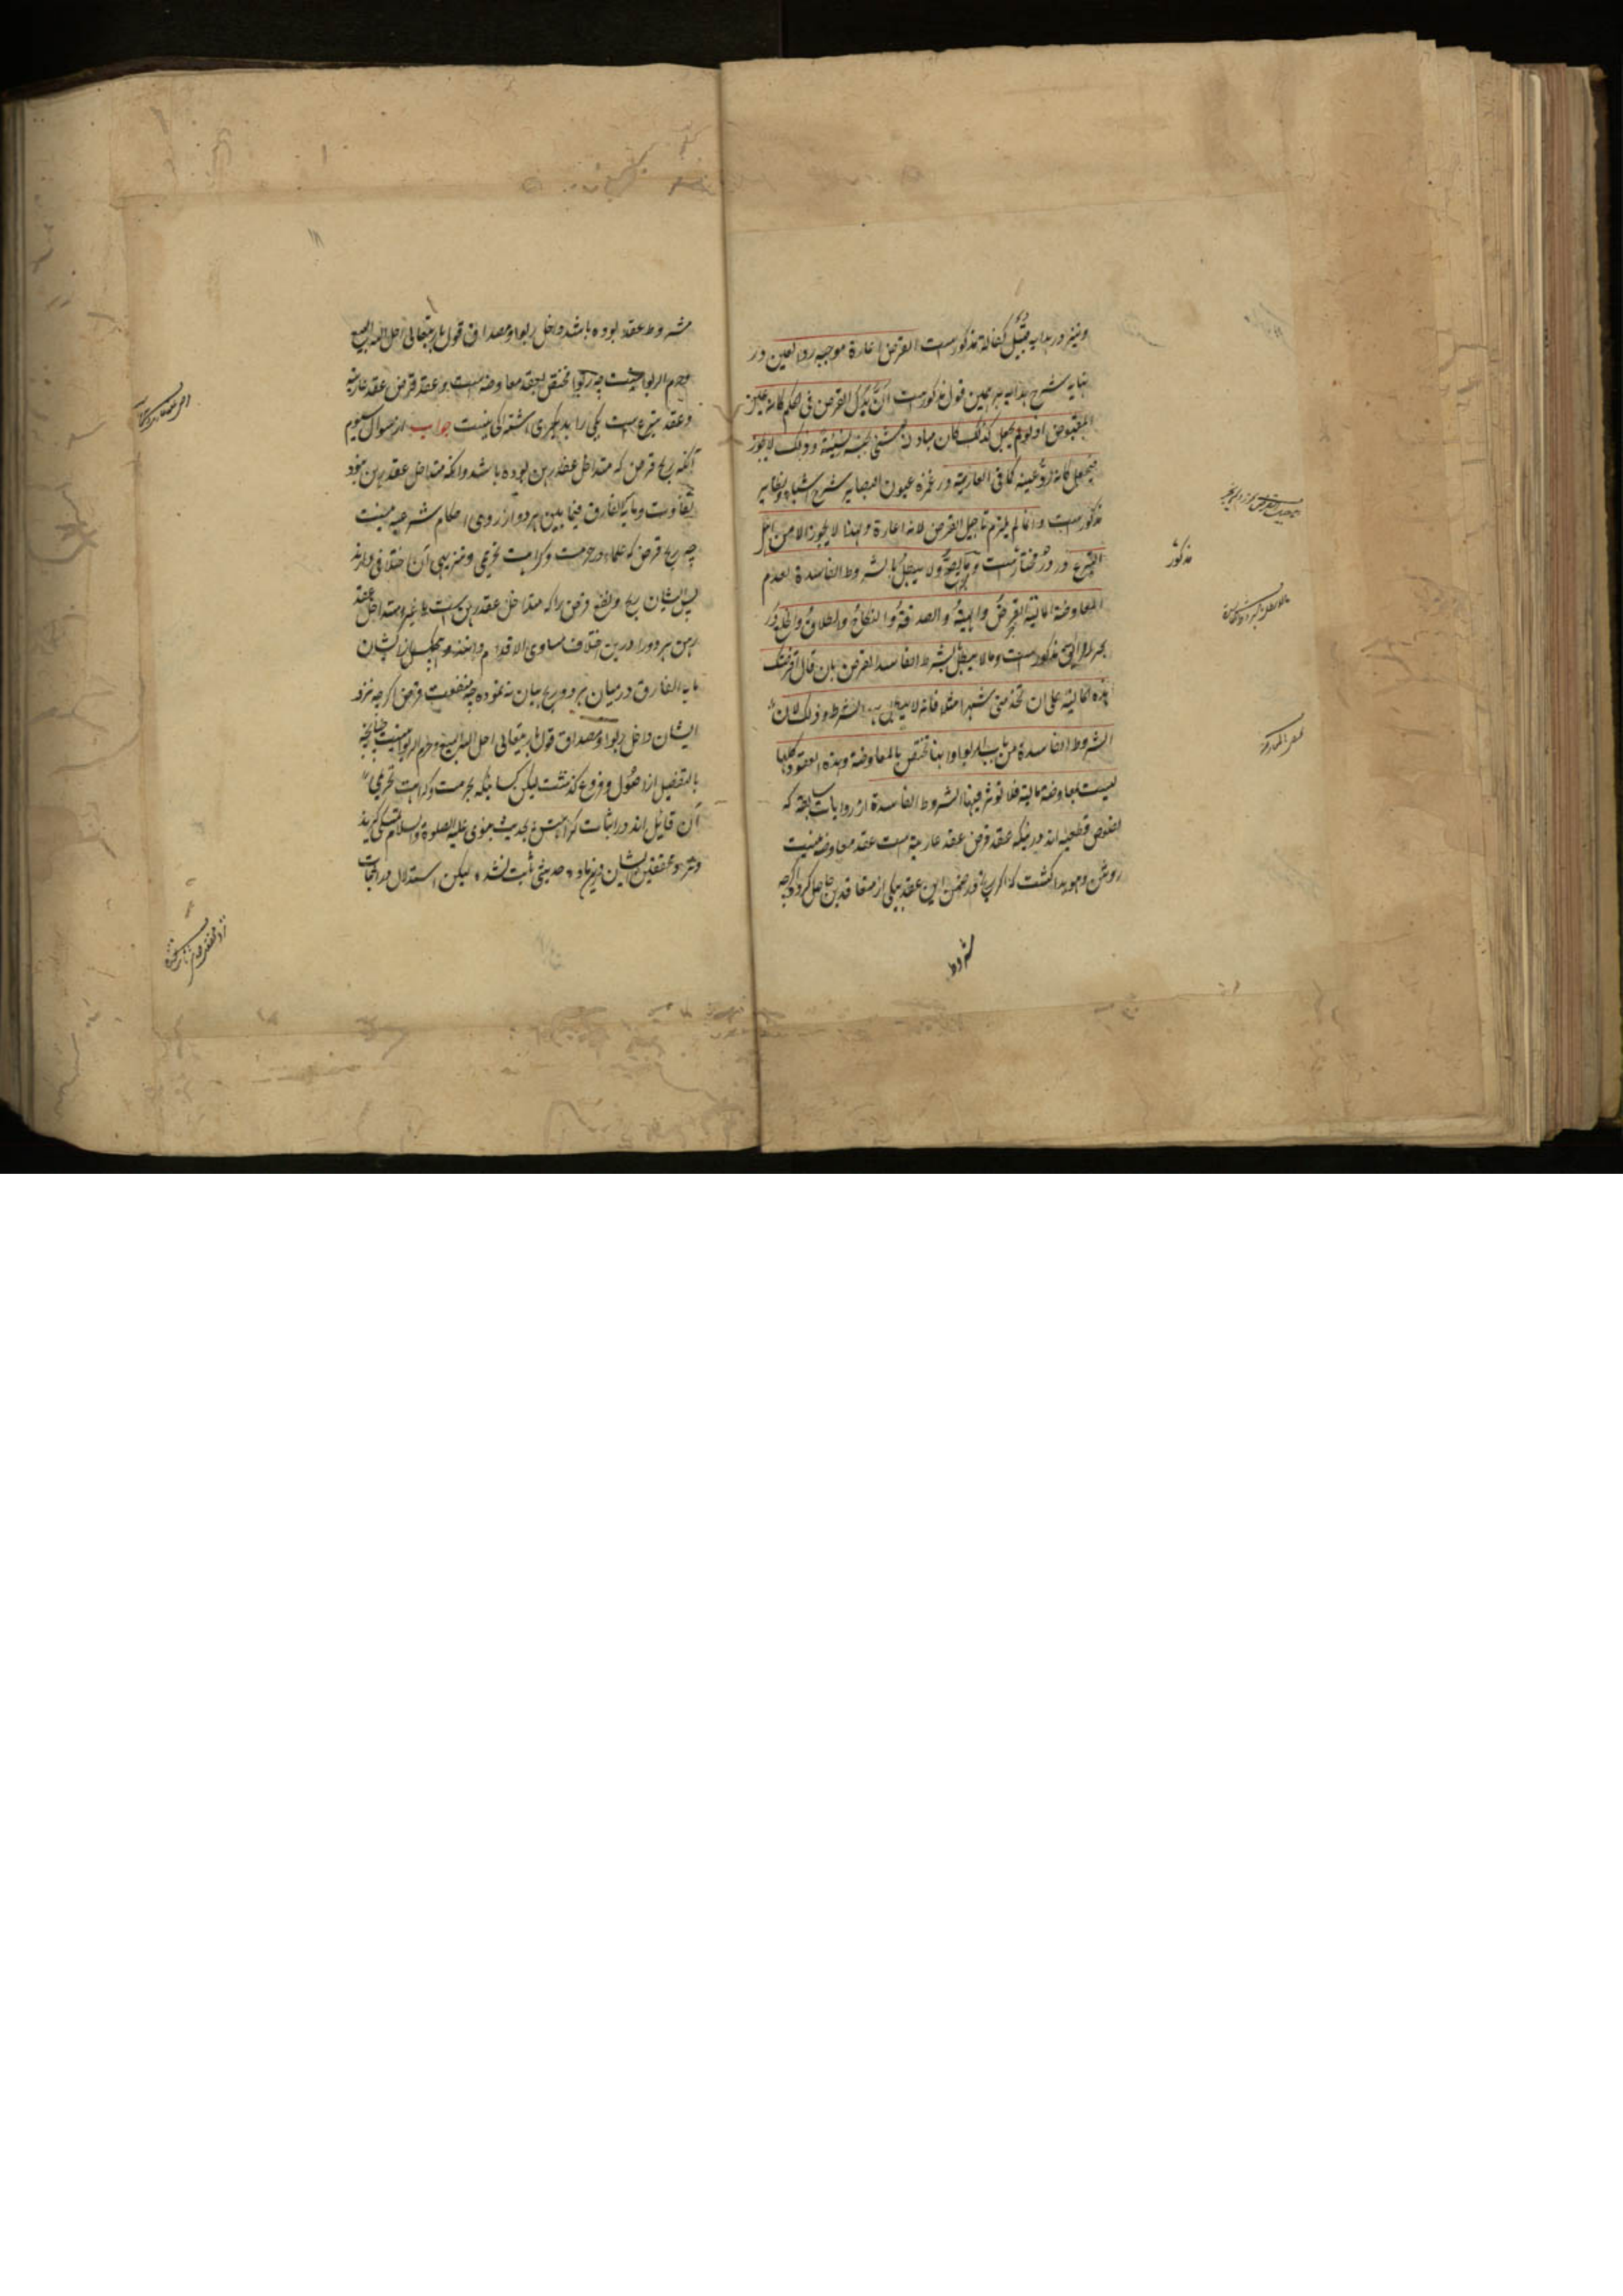 ونیز در هدایه قبیل کفاله مذکورست القرض اعارة موجبه رد العین در
نهایه شرح هدایه برهمین قول مذکورست ان بدل القرض فی الحکم کانه عین
المقبوض اذ لو لم یجعل کذلک کان مبادلة الشئ بجنسه نسیئة وذلک لا یجوز
فیجعل کانه رد عینه کما فی العاریة در غمزه عیون البصایر شرح اشباه ونظایر
مذکورست وانما لم یلزم تاجیل القرض لانه اعارة ولهذا لا یجوز الا من اهل
التبرع ودر در مختارست وما یصح ولا یبطل بالشروط الفاسدة لعدم
المعاوضة المالیة القرض والهبة والصدقة والنکاح والطلاق والخلع ودر
بحر الرایق مذکورست وما لا یبطل بالشرط الفاسد القرض بان قال اقرضتک
هذه المائة علی ان تخدمنی شهرا مثلا فانه لا یبطل بهذا الشرط وذلک لان
الشروط الفاسدة من باب الربوا وانها تختص بالمعاوضة وهذه العقود کلها
لیست بمعاوضة مالیة فلا توثر فیها الشروط الفاسدة از روایات سابقه که
نصوص قطعیه اند درینکه عقد قرض عقد عاریة است عقد معاوضه نیست
روشن وهویدا گشت که اگر در ضمن این عقد یکی از متعاقدین حاصل کرد اگرچه
مذکور
شروط
مشروط عقد بوده باشد داخل ربوا ومصداق قول باریتعالی احل الله البیع
وحرم الربوا نیست چه ربوا مختص بعقد معاوضه است وعقد قرض عقد عاریة
وعقد تبرع ست یکی را بدیگری اشتراکی نیست جواب از سوال سیوم
آنکه ربح قرض که متداخل عقد رهن بوده باشد وآنکه متداخل عقد رهن نبود
تفاوت وما به الفارق فیما بین هردو از روی احکام شرعیه نیست
چه ربح قرض که علماء در حرمت وکراهت تحریمی وتنزیهی آن اختلافی دارند
پس ایشان ربح ونفع قرض را که متداخل عقد رهن ست وغیر متداخل عقد
رهن هردو را درین اختلاف مساوی الاقدام دانند وهیچکس از ایشان
ما به الفارق درمیان هردو ربح بیان ننموده چه منفعت قرض اگرچه نزد
ایشان داخل ربوا ومصداق قول باریتعالی احل الله البیع وحرم الربوا نیست چنانچه
بالتفصیل از اصول وفروع گذشت لیکن کسانیکه بحرمت وکراهت تحریمی
آن قایل اند در اثبات کراهتش بحدیث نبوی علیه الصلوة والسلام تمسک گرفته اند
ونزد محققین ایشان درین ماده حدیثی ثابت نشد لیکن استدلال در انجاست